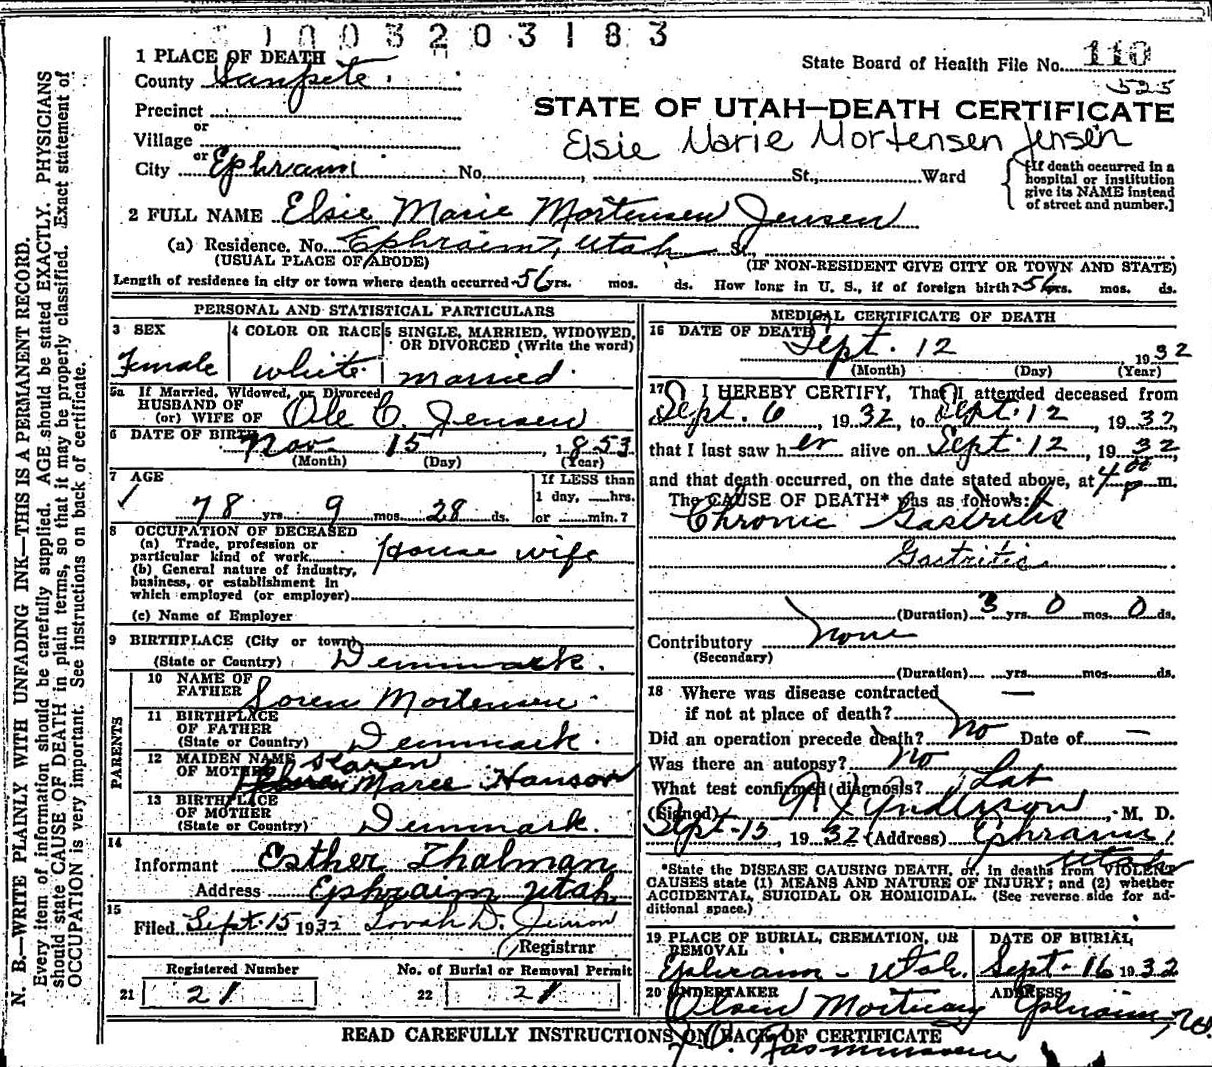 1003203183
1 PLACE OF DEATH
County Sanpete.
State Board of Health File No. 110
525
Precinct
or
Village
or
City Ephraim No. , St., Ward
STATE OF UTAH—DEATH CERTIFICATE
Elsie Marie Mortensen Jensen
{If death occurred in a
hospital or institution
give its NAME instead
of street and number.]
2 FULL NAME Elsie Marie Mortensen Jensen
(a) Residence. No. Ephraim, Utah St.,
(USUAL PLACE OF ABODE) (IF NON-RESIDENT GIVE CITY OR TOWN AND STATE)
Length of residence in city or town where death occurred 56 yrs. mos. ds. How long in U. S., if of foreign birth? 56 yrs. mos. ds.
PERSONAL AND STATISTICAL PARTICULARS
3 SEX
Female
4 COLOR OR RACE
White
5 SINGLE, MARRIED, WIDOWED,
OR DIVORCED (Write the word)
married.
5a If Married, Widowed, or Divorced
HUSBAND OF
(or) WIFE OF Ole C. Jensen
6 DATE OF BIRTH Nov 15, 1853
(Month) (Day) (Year)
7 AGE
✓ 78 yrs. 9 mos. 28 ds.
If LESS than
1 day, hrs.
or min.?
8 OCCUPATION OF DECEASED
(a) Trade, profession or
particular kind of work House wife
(b) General nature of industry,
business, or establishment in
which employed (or employer)
(c) Name of Employer
9 BIRTHPLACE (City or town)
(State or Country) Denmark.
PARENTS
10 NAME OF
FATHER Soren Mortensen
11 BIRTHPLACE
OF FATHER
(State or Country) Denmark.
12 MAIDEN NAME Karen
OF MOTHER Maree Hanson
13 BIRTHPLACE
OF MOTHER
(State or Country) Denmark.
14
Informant Esther Thalman
Address Ephraim Utah
15
Filed Sept. 15 1932 Lovah D. Jensen
Registrar
Registered Number
21 21
No. of Burial or Removal Permit
22 21
MEDICAL CERTIFICATE OF DEATH
16 DATE OF DEATH
Sept. 12 1932
(Month) (Day) (Year)
17 I HEREBY CERTIFY, That I attended deceased from
Sept. 6, 1932, to Sept. 12, 1932,
that I last saw her alive on Sept. 12, 1932
and that death occurred, on the date stated above, at 4 00 p m.
The CAUSE OF DEATH* was as follows:
Chronic Gastritis
Gastritis
(Duration) 3 yrs. 0 mos. 0 ds.
Contributory none
(Secondary)
(Duration) yrs. mos. ds.
18 Where was disease contracted
if not at place of death? —
Did an operation precede death? No Date of —
Was there an autopsy? No
What test confirmed diagnosis? Lab
(Signed) Anderson, M. D.
Sept-15, 1932 (Address) Ephraim,
Utah
*State the DISEASE CAUSING DEATH, or, in deaths from VIOLENT
CAUSES state (1) MEANS AND NATURE OF INJURY; and (2) whether
ACCIDENTAL, SUICIDAL OR HOMICIDAL. (See reverse side for ad-
ditional space.)
19 PLACE OF BURIAL, CREMATION, OR
REMOVAL
Ephraim - Utah.
DATE OF BURIAL
Sept. 16 1932
20 UNDERTAKER
Olsen Mortuary
Rasmussen
ADDRESS
Ephraim, Ut.
READ CAREFULLY INSTRUCTIONS ON BACK OF CERTIFICATE
N. B.—WRITE PLAINLY WITH UNFADING INK—THIS IS A PERMANENT RECORD.
Every item of information should be carefully supplied. AGE should be stated EXACTLY. PHYSICIANS
should state CAUSE OF DEATH in plain terms, so that it may be properly classified. Exact statement of
OCCUPATION is very important. See instructions on back of certificate.